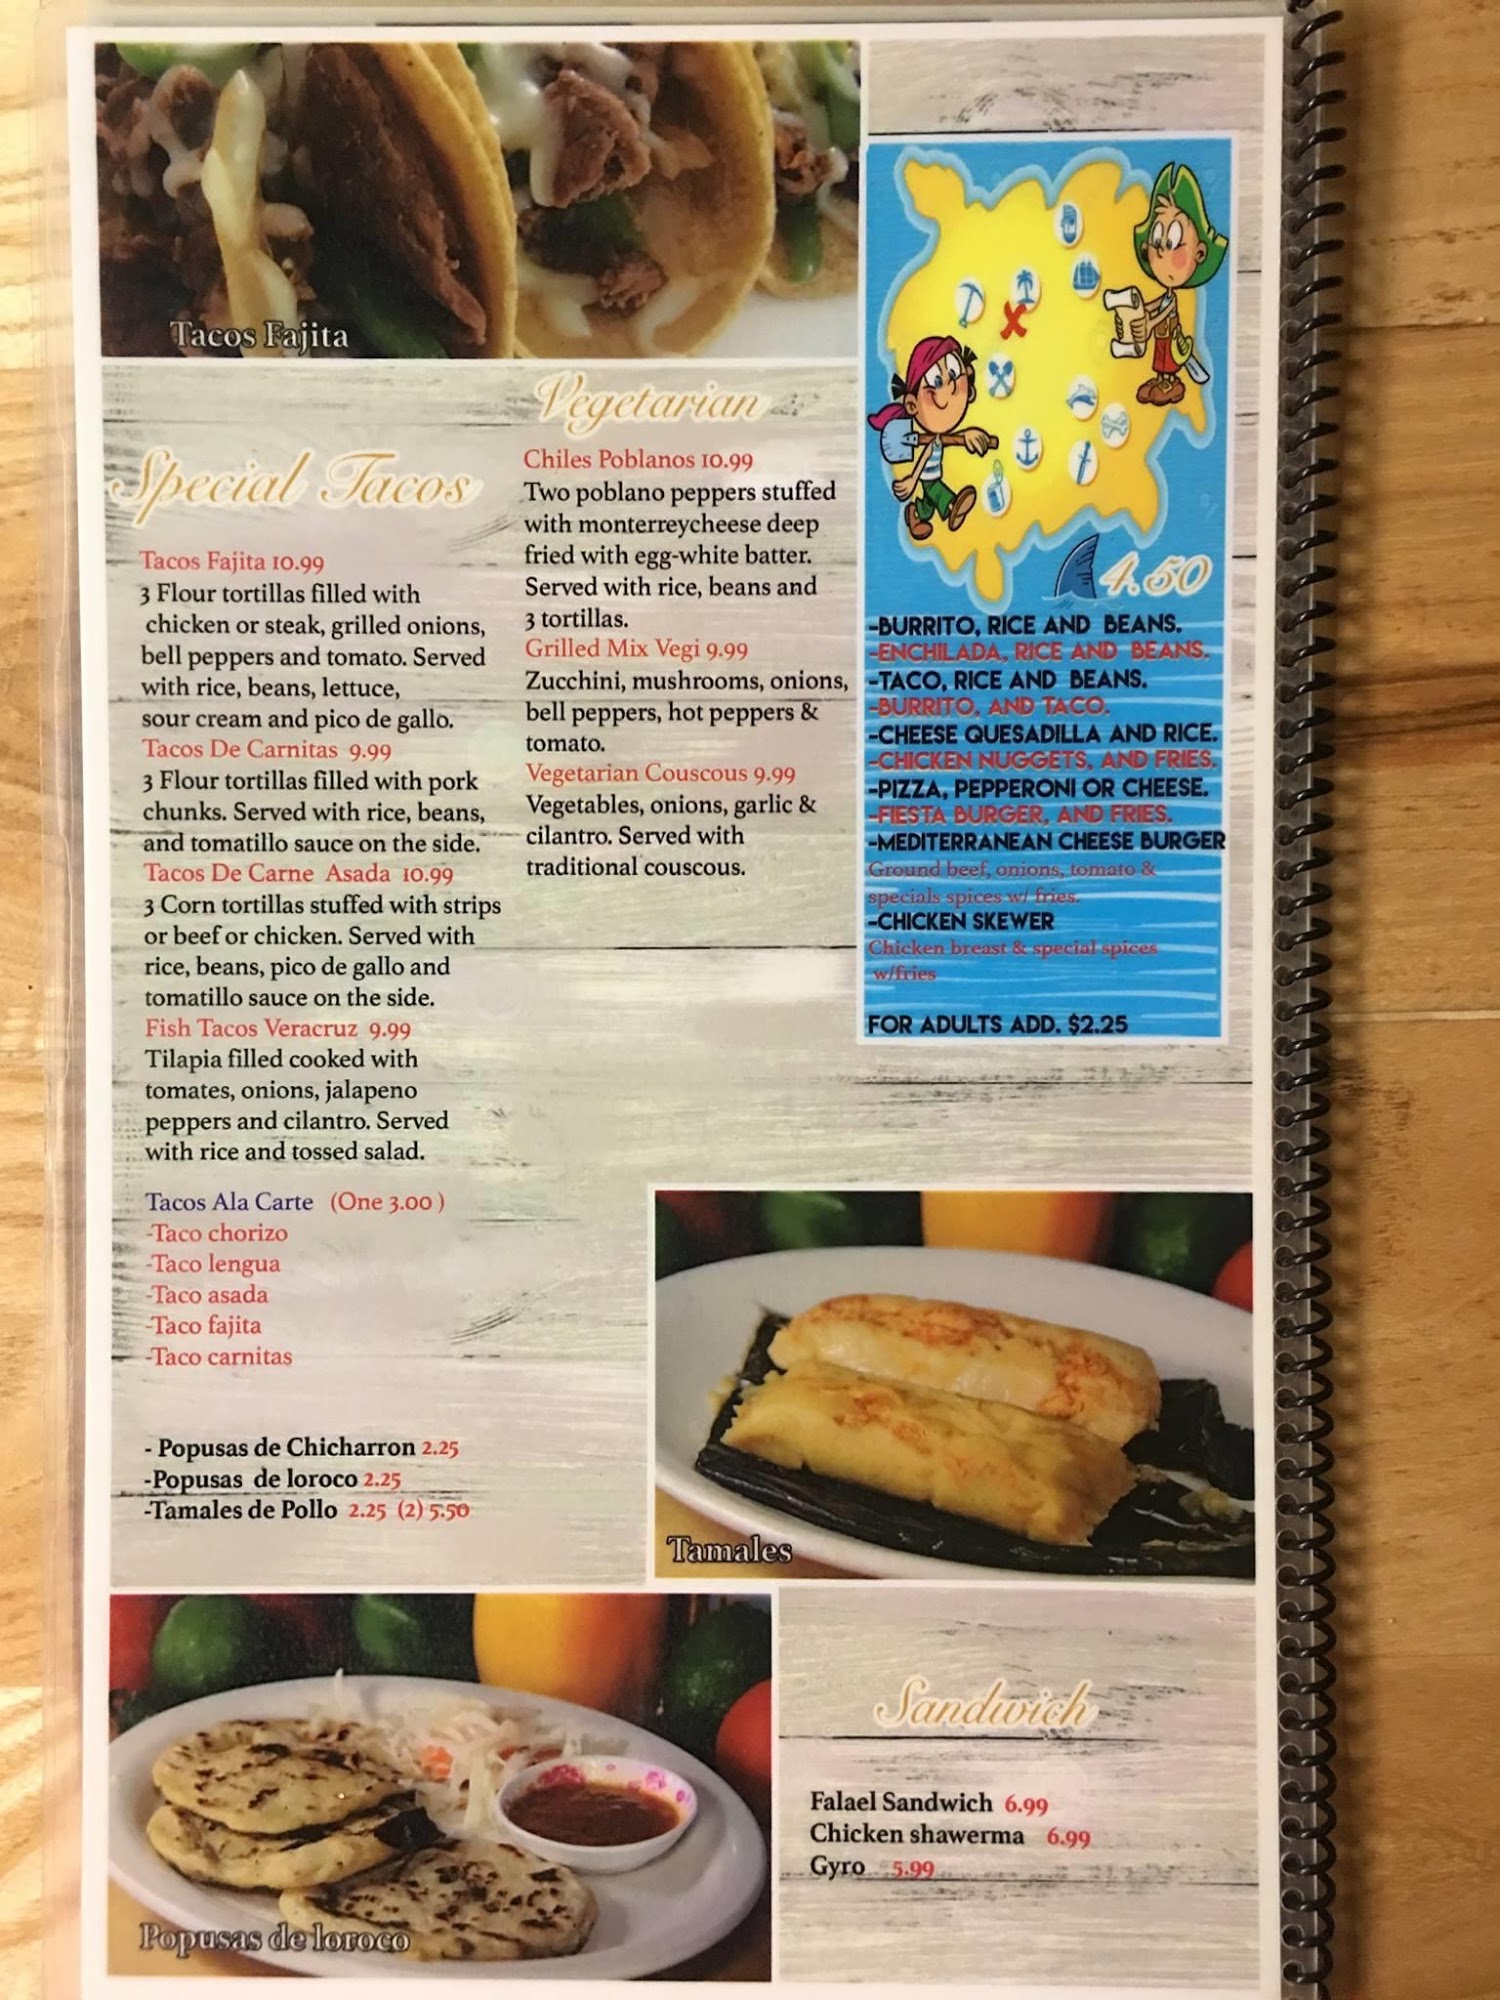 Tacos Fajita
Special Tacos
Tacos Fajita 10.99
3 Flour tortillas filled with
chicken or steak, grilled onions,
bell peppers and tomato. Served
with rice, beans, lettuce,
sour cream and pico de gallo.
Tacos De Carnitas 9.99
3 Flour tortillas filled with pork
chunks. Served with rice, beans,
and tomatillo sauce on the side.
Tacos De Carne Asada 10.99
3 Corn tortillas stuffed with strips
or beef or chicken. Served with
rice, beans, pico de gallo and
tomatillo sauce on the side.
Fish Tacos Veracruz 9.99
Tilapia filled cooked with
tomates, onions, jalapeno
peppers and cilantro. Served
with rice and tossed salad.
Tacos Ala Carte (One 3.00 )
-Taco chorizo
-Taco lengua
-Taco asada
-Taco fajita
-Taco carnitas
- Popusas de Chicharron 2.25
-Popusas de loroco 2.25
-Tamales de Pollo 2.25 (2) 5.50
Vegetarian
Chiles Poblanos 10.99
Two poblano peppers stuffed
with monterreycheese deep
fried with egg-white batter.
Served with rice, beans and
3 tortillas.
Grilled Mix Vegi 9.99
Zucchini, mushrooms, onions,
bell peppers, hot peppers &
tomato.
Vegetarian Couscous 9.99
Vegetables, onions, garlic &
cilantro. Served with
traditional couscous.
4.50
-BURRITO, RICE AND BEANS.
-ENCHILADA, RICE AND BEANS.
-TACO, RICE AND BEANS.
-BURRITO, AND TACO.
-CHEESE QUESADILLA AND RICE.
-CHICKEN NUGGETS, AND FRIES.
-PIZZA, PEPPERONI OR CHEESE.
-FIESTA BURGER, AND FRIES.
-MEDITERRANEAN CHEESE BURGER
Ground beef, onions, tomato &
specials spices w/ fries.
-CHICKEN SKEWER
Chicken breast & special spices
w/fries
FOR ADULTS ADD. $2.25
Tamales
Popusas de loroco
Sandwich
Falael Sandwich 6.99
Chicken shawerma 6.99
Gyro 5.99